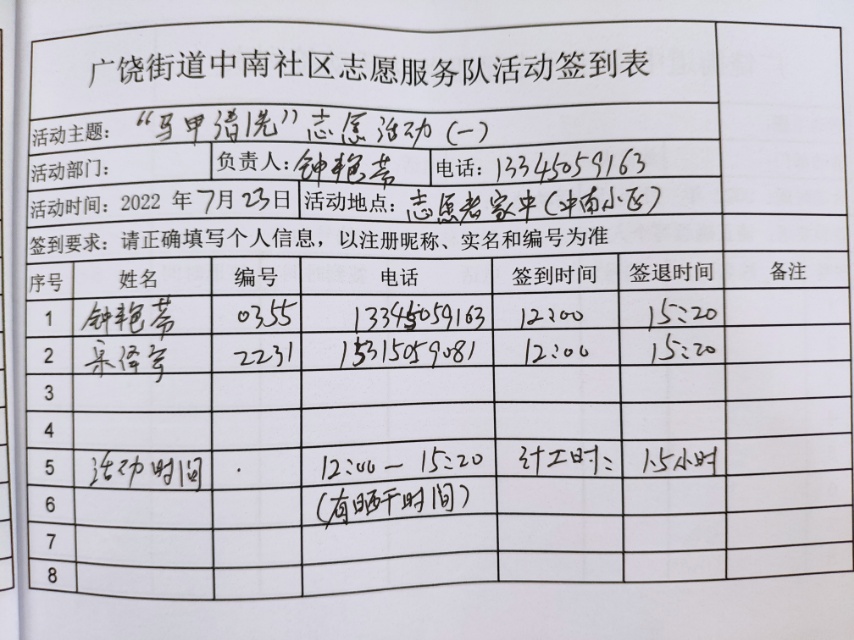 广饶街道中南社区志愿服务队活动签到表
活动主题：“马甲清洗”志愿活动（一）
活动部门： 负责人：钟艳蒂 电话：13345059163
活动时间：2022 年 7月 23日 活动地点：志愿者家中（中南小区）
签到要求：请正确填写个人信息，以注册昵称、实名和编号为准
序号 姓名 编号 电话 签到时间 签退时间 备注
1 钟艳蒂 0355 13345059163 12:00 15:20
2 2231 15315059081 12:00 15:20
3
4
5 活动时间 12:00—15:20 计工时： 1.5小时
6 （有晒干时间）
7
8